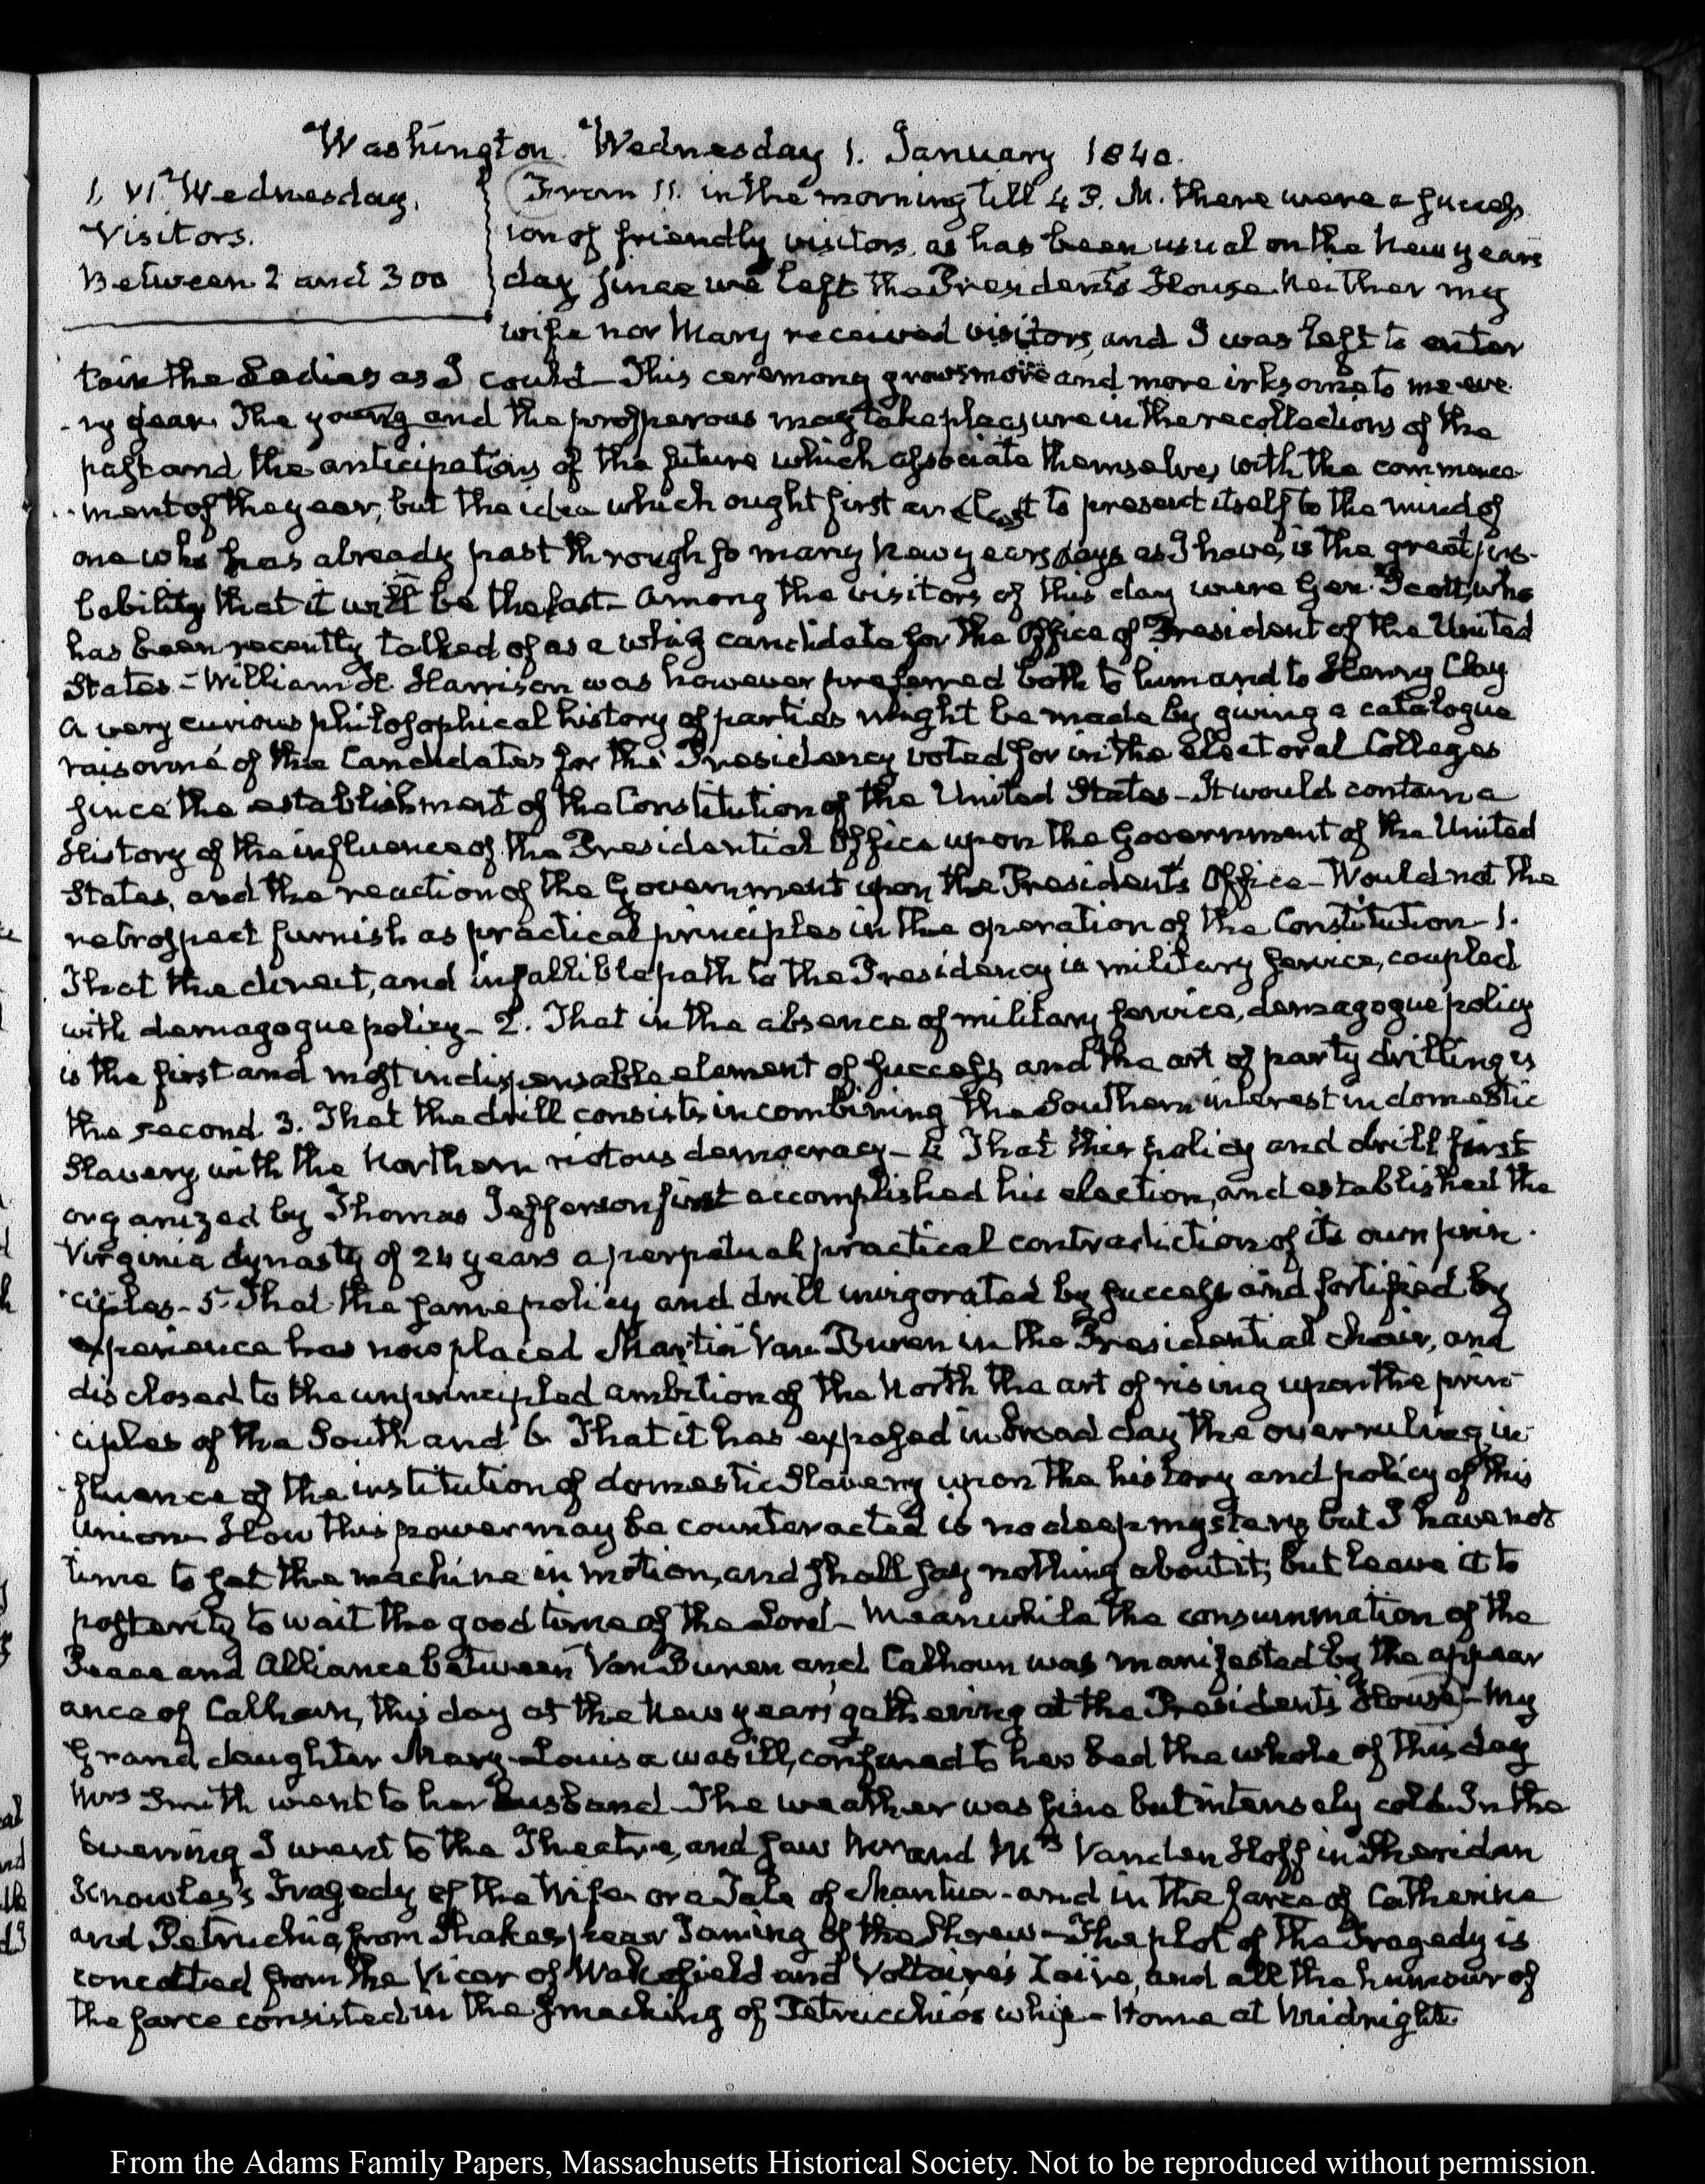 Washington Wednesday 1. January 1840.
1. VI. Wednesday.
Visitors.
Between 2 and 300
From 11. in the morning till 4 P. M. there were a success
ion of friendly visitors, as has been usual on the New years
day since we left the President's House. Neither my
wife nor Mary received visitors, and I was left to enter
tain the Ladies as I could— This ceremony grows more and more irksome to me eve
ry year. The young and the prosperous may take pleasure in the recollections of the
past and the anticipations of the future which associate themselves with the commence
ment of the year, but the idea which ought first and last to present itself to the mind of
one who has already past through so many New years days as I have, is the great pro-
bability that it will be the last— Among the visitors of this day were Gen. Scott, who
has been recently talked of as a whig candidate for the Office of President of the United
States— William H. Harrison was however preferred both to him and to Henry Clay
A very curious philosophical history of parties might be made by giving a catalogue
raisonné of the Candidates for the Presidency voted for in the electoral Colleges
since the establishment of the Constitution of the United States— It would contain a
History of the influence of the Presidential Office upon the Government of the United
States, and the reaction of the Government upon the President's Office— Would not the
retrospect furnish as practical principles in the operation of the Constitution— 1.
That the direct, and infallible path to the Presidency is military service, coupled
with demagogue policy— 2. That in the absence of military service, demagogue policy
is the first and most indispensable element of success, and the art of party drilling is
the second 3. That the drill consists in combining the Southern interest in domestic
Slavery with the Northern riotous democracy— 4 That this policy and drill first
organized by Thomas Jefferson first accomplished his election, and established the
Virginia dynasty of 24 years a perpetual practical contradiction of its own prin
ciples— 5. That the same policy and drill invigorated by success and fortified by
experience has now placed Martin Van Buren in the Presidential chair, and
disclosed to the unprincipled ambition of the North the art of rising upon the prin
ciples of the South and 6. That it has exposed in broad day the overruling in
fluence of the institution of domestic Slavery upon the history and policy of this
Union— How this power may be counteracted is no deep mystery but I have not
time to set the machine in motion, and shall say nothing about it; but leave it to
posterity to wait the good time of the Lord— Meanwhile the consummation of the
Peace and Alliance between Van Buren and Calhoun was manifested by the appear
ance of Calhoun, this day at the New years gathering at the President's House— My
Grand daughter Mary-Louisa was ill, confined to her bed the whole of this day
Mrs Smith went to her husband— The weather was fine but intensely cold. In the
Evening I went to the Theatre, and saw Mr and Mrs Vanden Hoff in Sheridan
Knowles's Tragedy of the Wife or a Tale of Mantua— and in the farce of Catherine
and Petruchio, from Shakespear Taming of the Shrew— The plot of the Tragedy is
concocted from the Vicar of Wakefield and Voltaire's Zaire, and all the humour of
the farce consisted in the smacking of Petrucchio's whip— Home at Midnight.
From the Adams Family Papers, Massachusetts Historical Society. Not to be reproduced without permission.